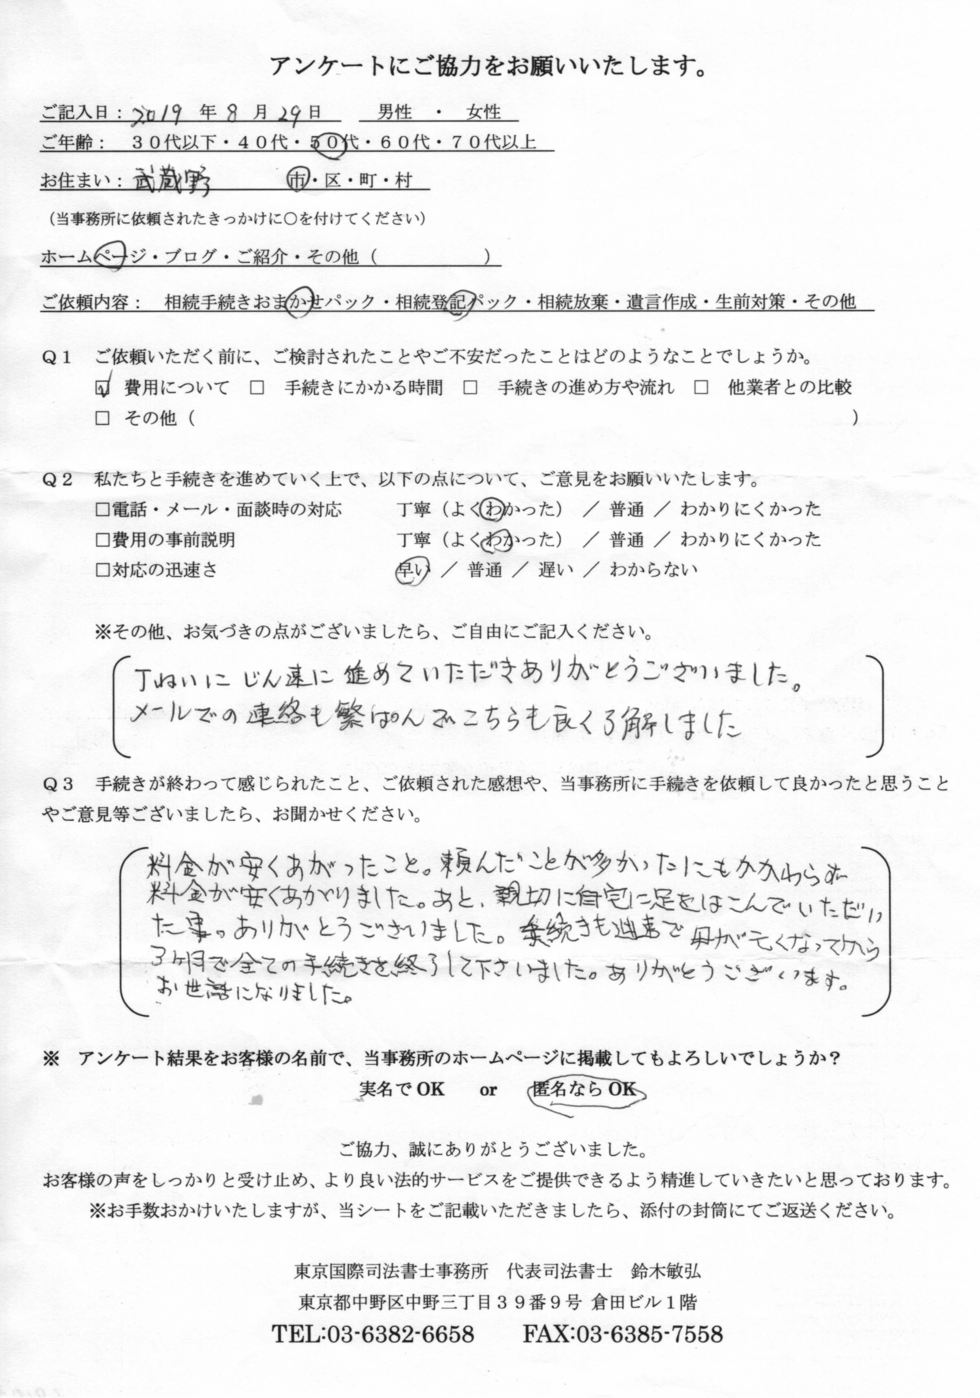 アンケートにご協力をお願いいたします。
ご記入日：2019 年 8 月 29日　　男性　・　女性
ご年齢：　３０代以下・４０代・５０代・６０代・７０代以上
お住まい：武蔵野　　市・区・町・村
（当事務所に依頼されたきっかけに○を付けてください）
ホームページ・ブログ・ご紹介・その他（　　　　　　）
ご依頼内容：　相続手続きおまかせパック・相続登記パック・相続放棄・遺言作成・生前対策・その他
Ｑ１　ご依頼いただく前に、ご検討されたことやご不安だったことはどのようなことでしょうか。
☑ 費用について　□　手続きにかかる時間　□　手続きの進め方や流れ　□　他業者との比較
□ その他（　　　　　　　　　　　　）
Ｑ２　私たちと手続きを進めていく上で、以下の点について、ご意見をお願いいたします。
□電話・メール・面談時の対応　　丁寧（よくわかった）　／ 普通 ／ わかりにくかった
□費用の事前説明　　丁寧（よくわかった）　／ 普通 ／ わかりにくかった
□対応の迅速さ　　早い ／ 普通 ／ 遅い ／ わからない
※その他、お気づきの点がございましたら、ご自由にご記入ください。
丁ねいに じん速に 進めていただきありがとうございました。
メールでの連絡も繁ぱんでこちらも良く了解しました
Ｑ３　手続きが終わって感じられたこと、ご依頼された感想や、当事務所に手続きを依頼して良かったと思うこと
やご意見等ございましたら、お聞かせください。
料金が安くあがったこと。頼んだことが多かったにもかかわらぬ
料金が安くあがりました。あと、親切に自宅に足をはこんでいただい
た事。ありがとうございました。手続きも迅速で 母が亡くなってから
3ヶ月で全ての手続きを終了して下さいました。ありがとうございます。
お世話になりました。
※　アンケート結果をお客様の名前で、当事務所のホームページに掲載してもよろしいでしょうか？
実名でOK　　or　　匿名ならOK
ご協力、誠にありがとうございました。
お客様の声をしっかりと受け止め、より良い法的サービスをご提供できるよう精進していきたいと思っております。
※お手数おかけいたしますが、当シートをご記載いただきましたら、添付の封筒にてご返送ください。
東京国際司法書士事務所　代表司法書士　鈴木敏弘
東京都中野区中野三丁目３９番９号 倉田ビル１階
TEL:03-6382-6658　　FAX:03-6385-7558